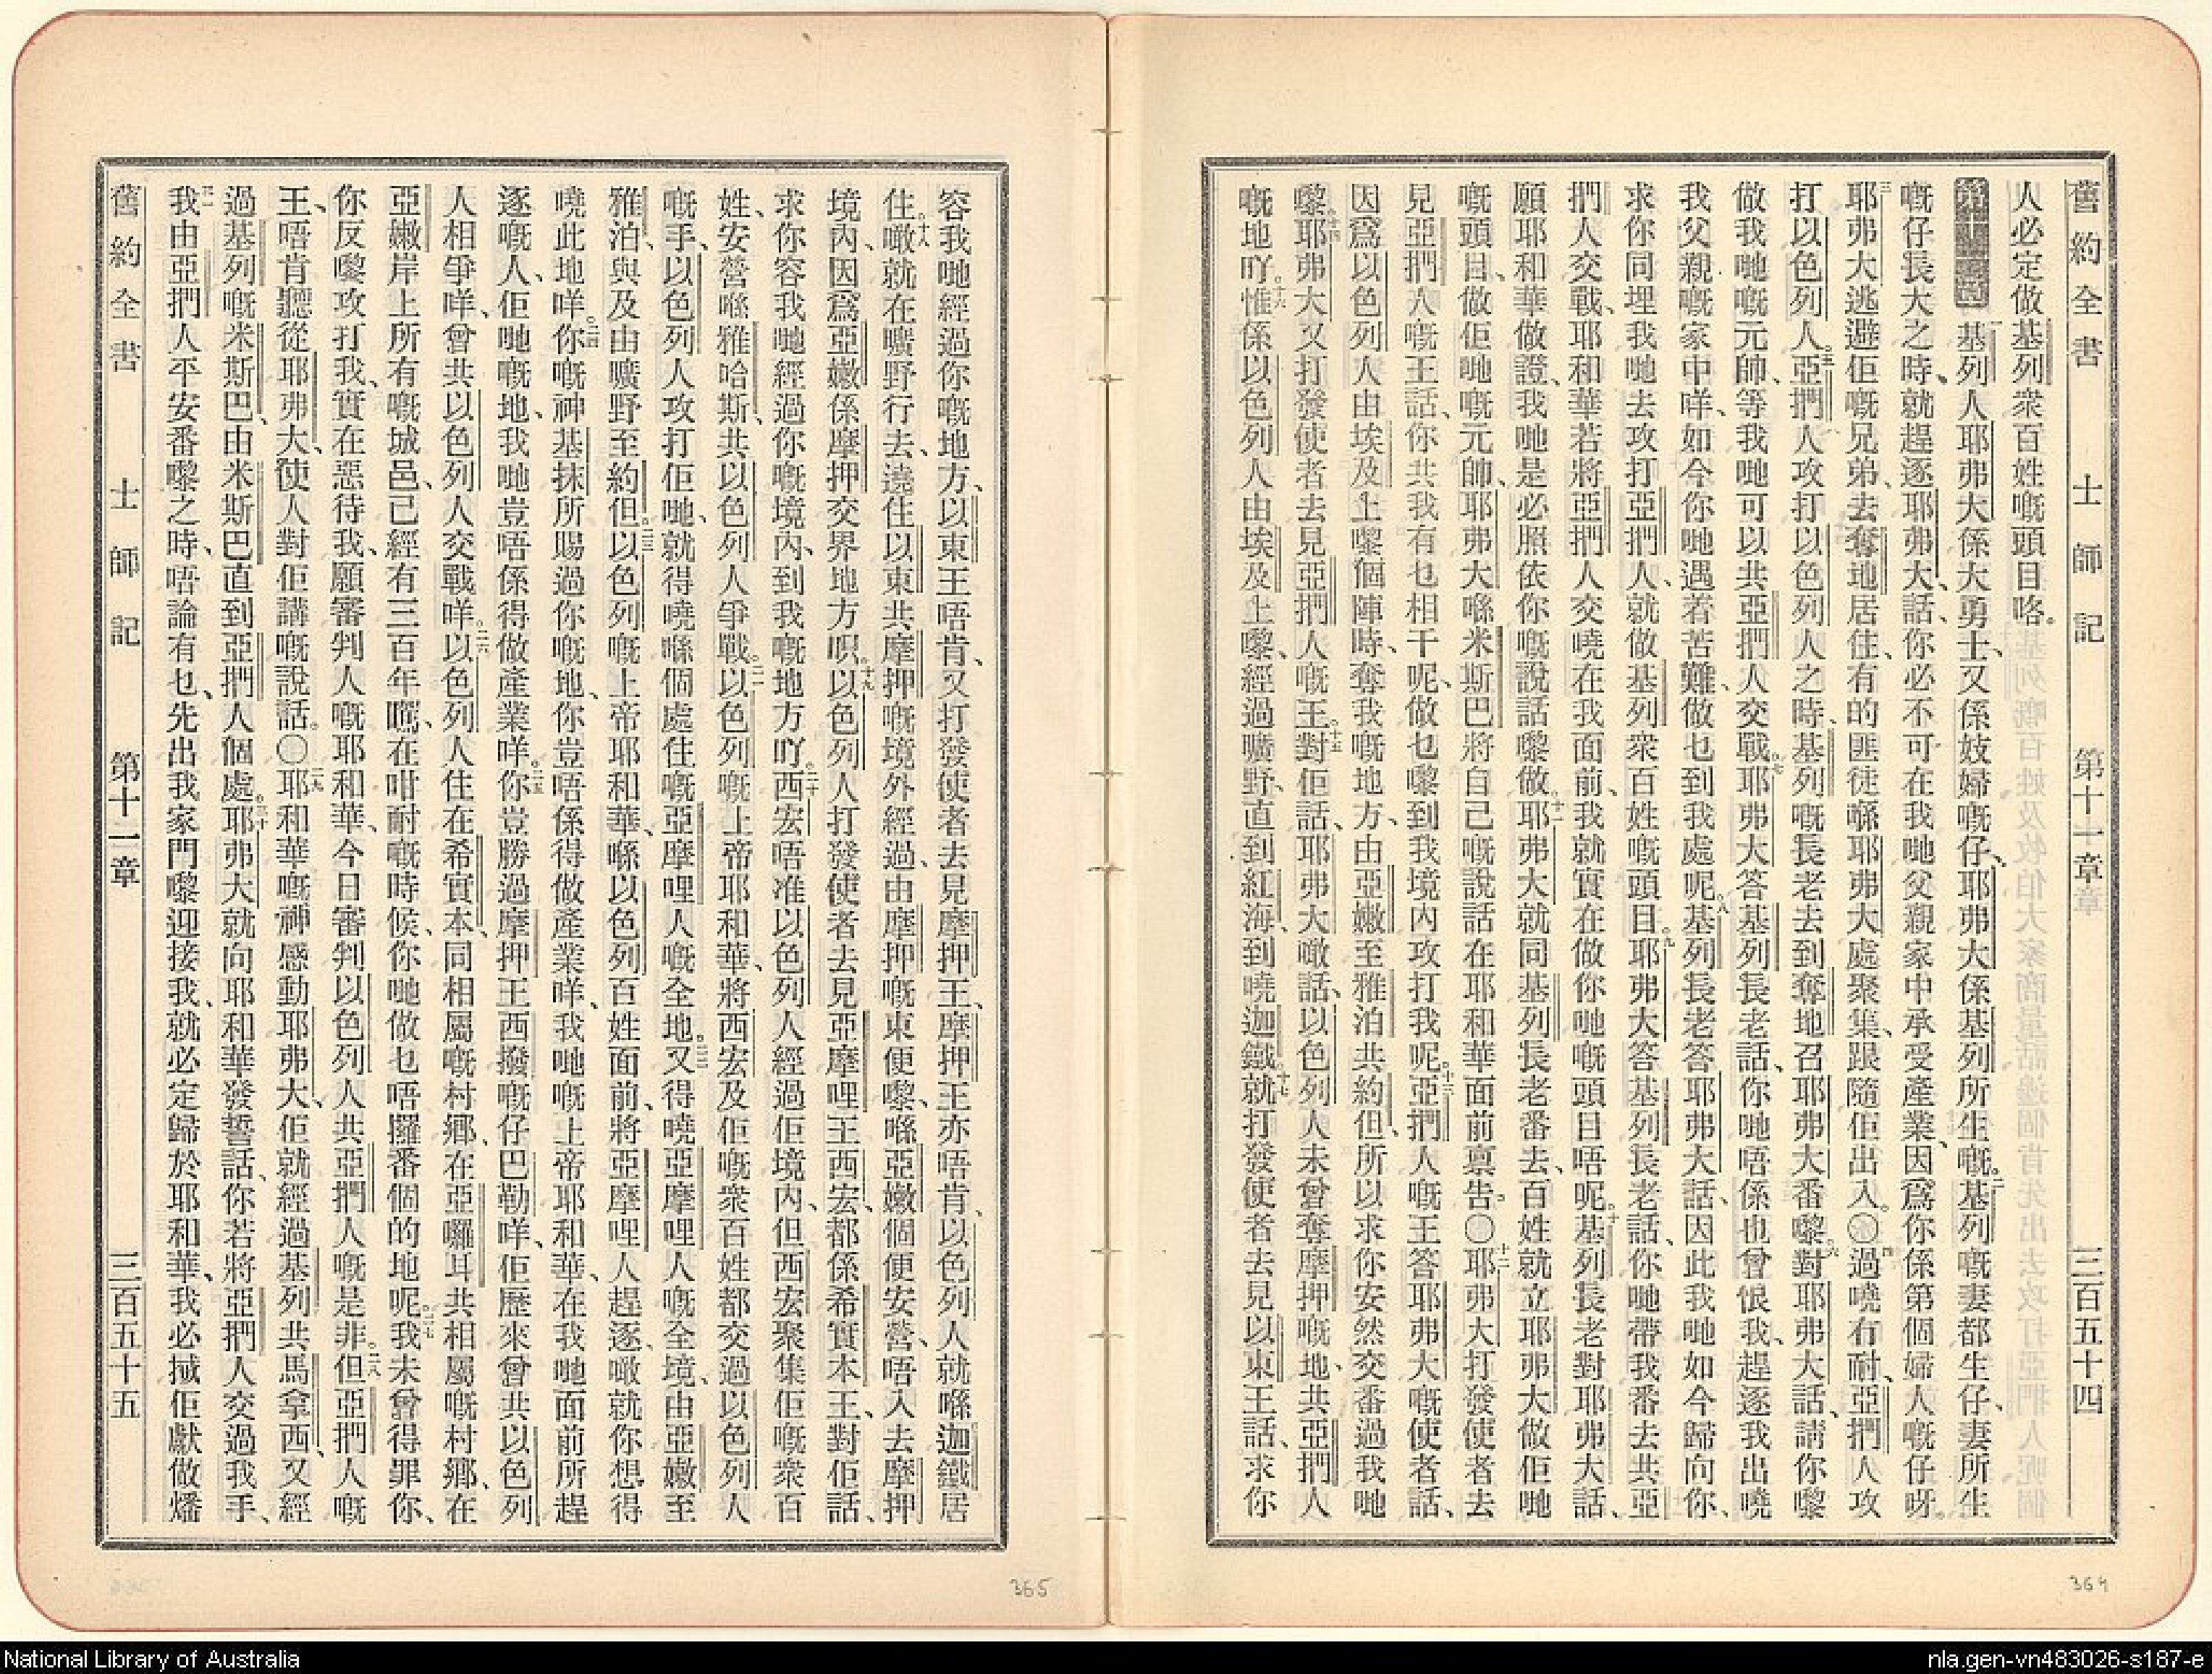 舊約全書 士師記 第十一章 三百五十四
人必定做基列衆百姓嘅頭目咯。
基列人耶弗大係大勇士、又係妓婦嘅仔、耶弗大係基列所生嘅。二基列嘅妻都生仔、妻所生
嘅仔長大之時、就趕逐耶弗大、話、你必不可在我哋父親家中承受產業、因爲你係第個婦人嘅仔呀。
三耶弗大逃避佢嘅兄弟、去奪地居住、有的匪徒喺耶弗大處聚集、跟隨佢出入。〇四過嘵冇耐、亞捫人攻
打以色列人。五亞捫人攻打以色列人之時、基列嘅長老去到奪地召耶弗大番嚟、六對耶弗大話、請你嚟
做我哋嘅元帥、等我哋可以共亞捫人交戰。七耶弗大答基列長老話、你哋唔係也曾恨我、趕逐我出嘵
我父親嘅家中咩、如今你哋遇着苦難、做乜到我處呢。八基列長老答耶弗大話、因此我哋如今歸向你、
求你同埋我哋去攻打亞捫人、就做基列衆百姓嘅頭目。九耶弗大答基列長老話、你哋帶我番去共亞
捫人交戰、耶和華若將亞捫人交嘵在我面前、我就實在做你哋嘅頭目唔呢。十基列長老對耶弗大話、
願耶和華做證、我哋是必照依你嘅說話嚟做。十一耶弗大就同基列長老番去、百姓就立耶弗大做佢哋
嘅頭目、做佢哋嘅元帥、耶弗大喺米斯巴將自己嘅說話在耶和華面前禀告。〇十二耶弗大打發使者去
見亞捫人嘅王話、你共我有乜相干呢、做乜嚟到我境內攻打我呢。十三亞捫人嘅王答耶弗大嘅使者話、
因爲以色列人由埃及上嚟個陣時、奪我嘅地方、由亞嫩至雅泊共約但、所以求你安然交番過我哋
嚟。十四耶弗大又打發使者去見亞捫人嘅王。十五對佢話、耶弗大噉話、以色列人未曾奪摩押嘅地、共亞捫人
嘅地吖。十六惟係以色列人由埃及上嚟、經過曠野、直到紅海、到嘵迦鐵。十七就打發使者去見以東王話、求你
舊約全書 士師記 第十一章 三百五十五
容我哋經過你嘅地方、以東王唔肯、又打發使者去見摩押王、摩押王亦唔肯、以色列人就喺迦鐵居
住。十八噉就在曠野行去、遶住以東共摩押嘅境外經過、由摩押嘅東便嚟、喺亞嫩個便安營、唔入去摩押
境內、因爲亞嫩係摩押交界地方呮。十九以色列人打發使者去見亞摩哩王西宏、都係希實本王、對佢話、
求你容我哋經過你嘅境內、到我嘅地方吖。二十西宏唔准以色列人經過佢境內、但西宏聚集佢嘅衆百
姓、安營喺雅哈斯、共以色列人爭戰。二一以色列嘅上帝耶和華、將西宏及佢嘅衆百姓都交過以色列人
嘅手、以色列人攻打佢哋、就得嘵喺個處住嘅亞摩哩人嘅全地。二二又得嘵亞摩哩人嘅全境、由亞嫩至
雅泊、與及由曠野至約但。二三以色列嘅上帝耶和華、喺以色列百姓面前、將亞摩哩人趕逐、噉就你想得
嘵此地咩。二四你嘅神基抹所賜過你嘅地、你豈唔係得做產業咩、我哋嘅上帝耶和華、在我哋面前所趕
逐嘅人、佢哋嘅地、我哋豈唔係得做產業咩。二五你豈勝過摩押王西撥嘅仔巴勒咩、佢歷來曾共以色列
人相爭咩、曾共以色列人交戰咩。二六以色列人住在希實本、同相屬嘅村鄉、在亞囉耳共相屬嘅村鄉、在
亞嫩岸上所有嘅城邑、已經有三百年嚦、在咁耐嘅時候、你哋做乜唔攞番個的地呢。二七我未曾得罪你、
你反嚟攻打我、實在惡待我、願審判人嘅耶和華、今日審判以色列人共亞捫人嘅是非。二八但亞捫人嘅
王、唔肯聽從耶弗大、使人對佢講嘅說話。〇二九耶和華嘅神感動耶弗大、佢就經過基列共馬拿西、又經
過基列嘅米斯巴、由米斯巴直到亞捫人個處。三十耶弗大就向耶和華發誓話、你若將亞捫人交過我手、
三一我由亞捫人平安番嚟之時、唔論有乜、先出我家門嚟迎接我、就必定歸於耶和華、我必搣佢獻做燔
365
364
National Library of Australia
nla.gen-vn483026-s187-e